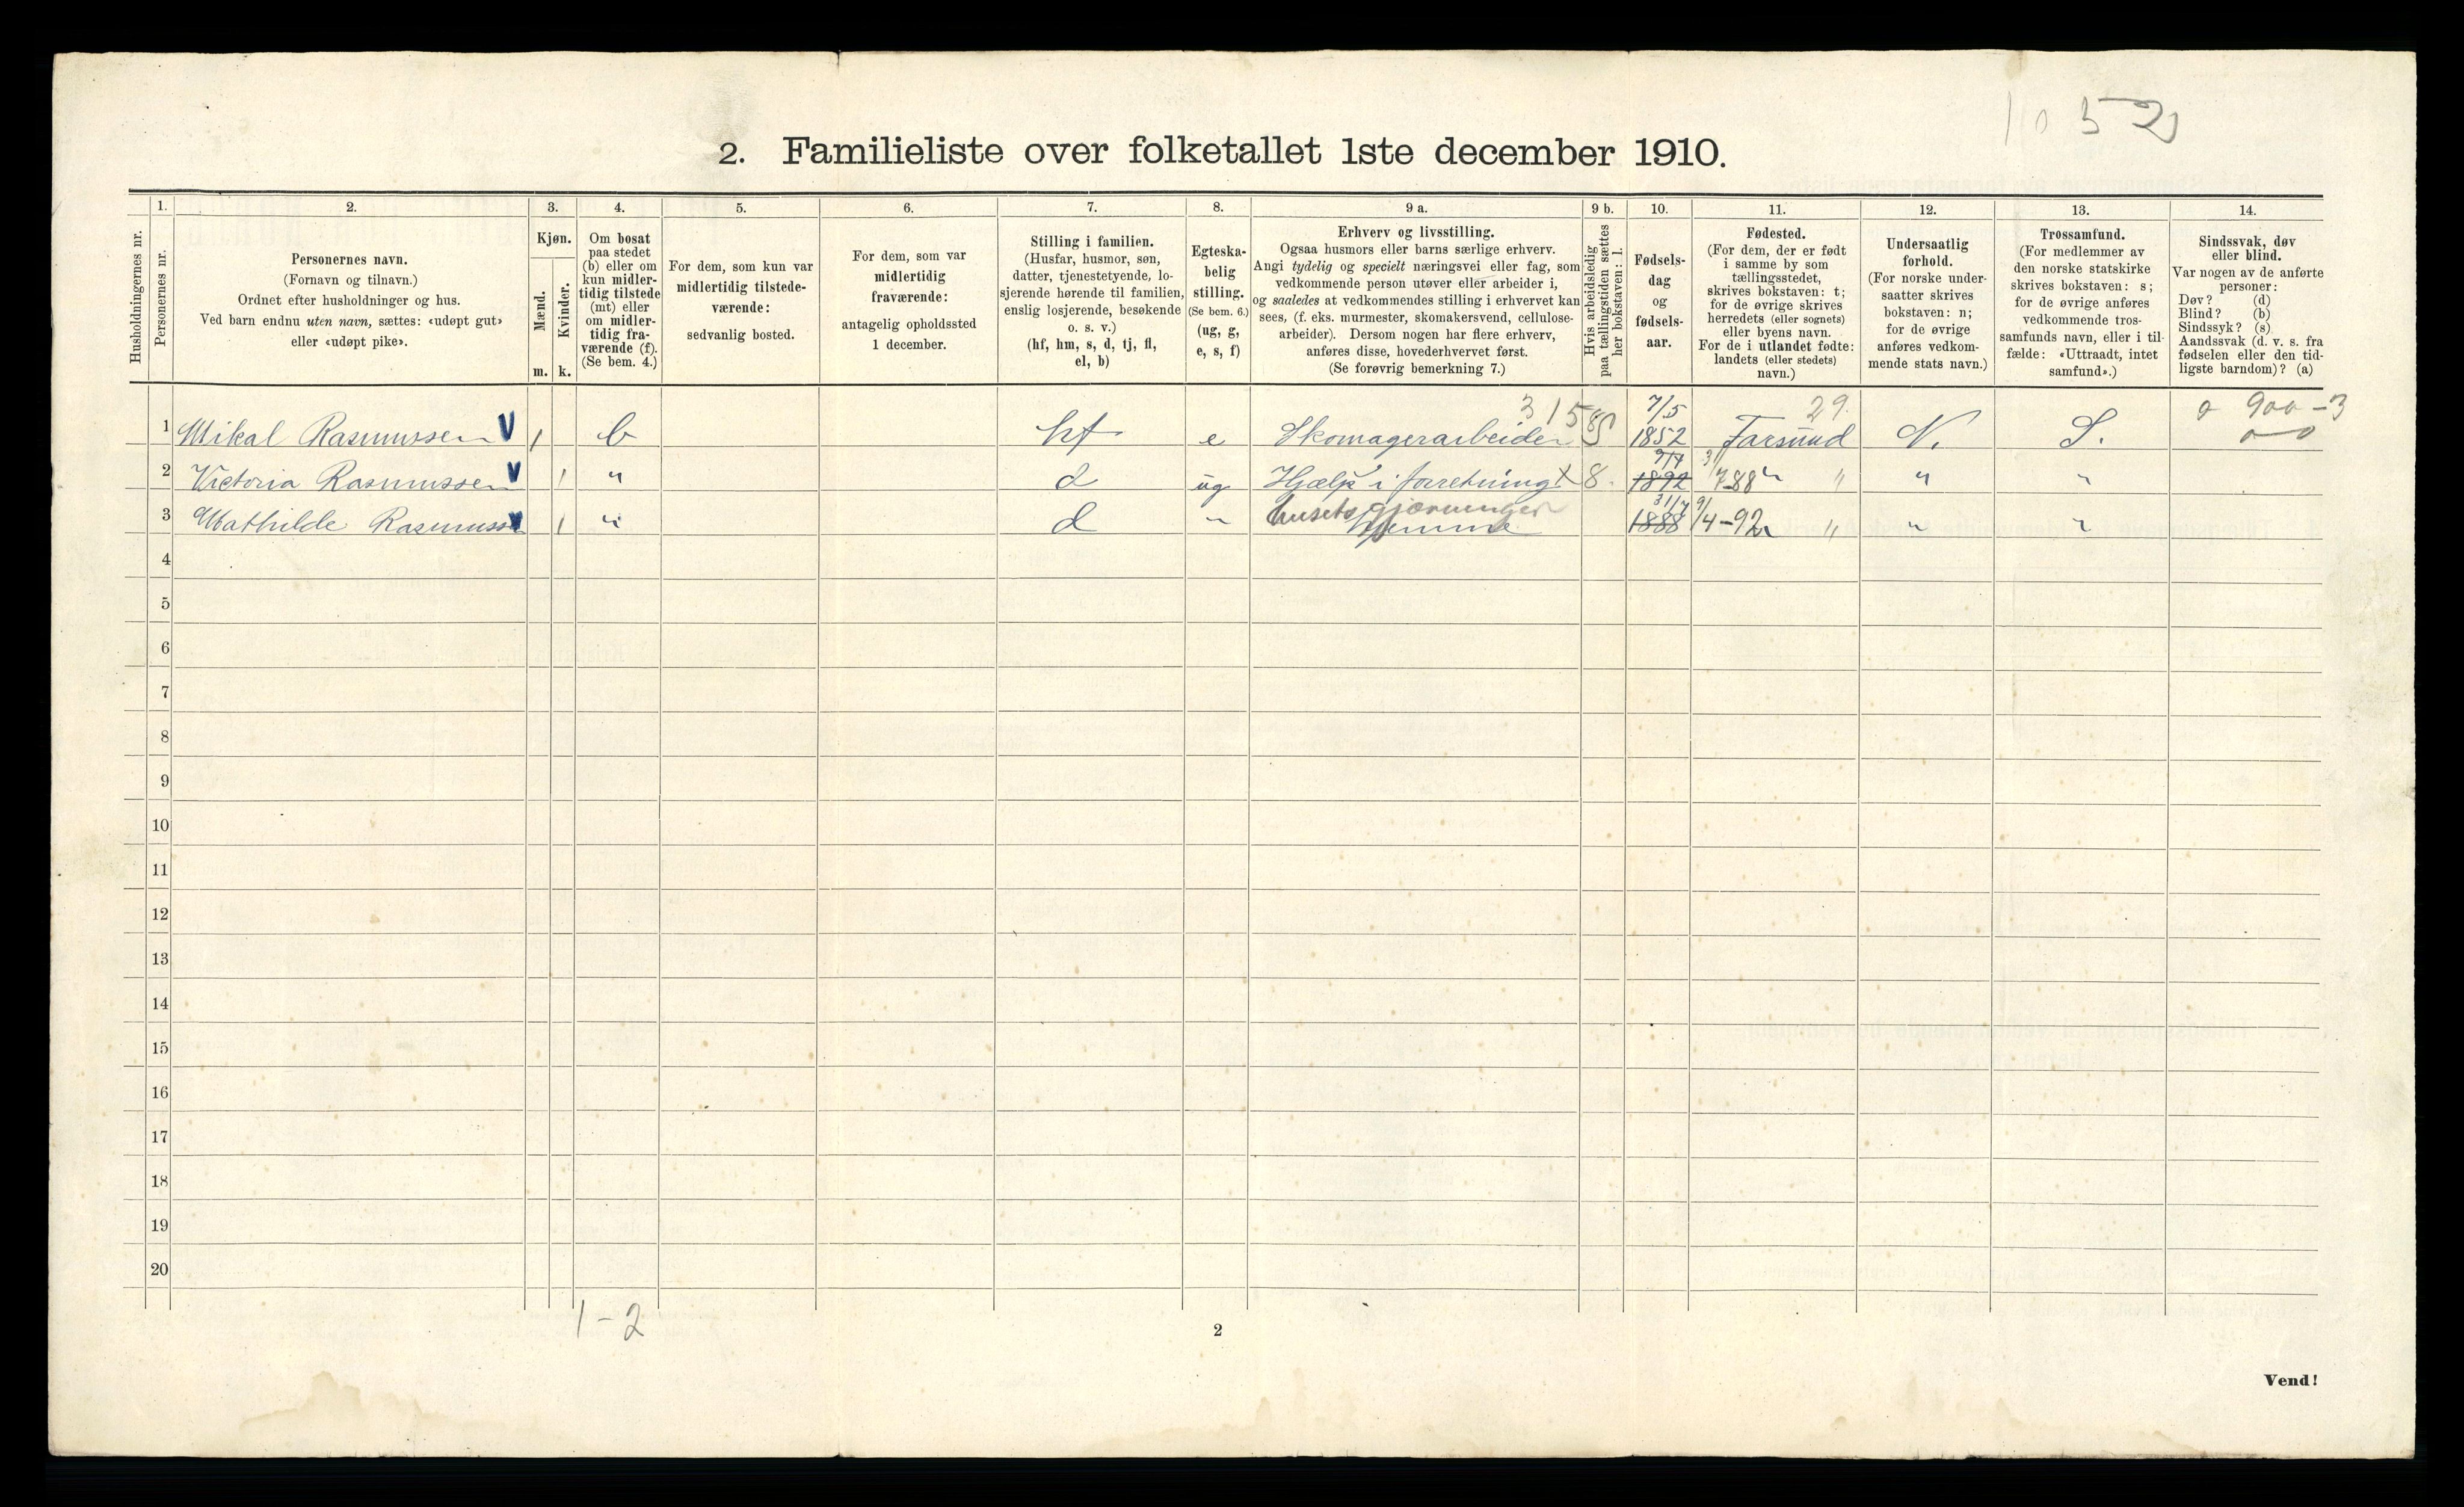 1052
2. Familieliste over folketallet 1ste december 1910.
1. 2. 3. 4. 5. 6. 7. 8. 9 a. 9 b. 10. 11. 12. 13. 14.
Husholdningernes nr.
Personernes nr.
Personernes navn.
(Fornavn og tilnavn.)
Ordnet efter husholdninger og hus.
Ved barn endnu uten navn, sættes: «udøpt gut»
eller «udøpt pike».
Kjøn.
Mænd.
Kvinder.
m. k.
Om bosat
paa stedet
(b) eller om
kun midler-
tidig tilstede
(mt) eller
om midler-
tidig fra-
værende (f).
(Se bem. 4.)
For dem, som kun var
midlertidig tilstede-
værende:
sedvanlig bosted.
For dem, som var
midlertidig
fraværende:
antagelig opholdssted
1 december.
Stilling i familien.
(Husfar, husmor, søn,
datter, tjenestetyende, lo-
sjerende hørende til familien,
enslig losjerende, besøkende
o. s. v.)
(hf, hm, s, d, tj, fl,
el, b)
Egteska-
belig
stilling.
(Se bem. 6.)
(ug, g,
e, s, f)
Erhverv og livsstilling.
Ogsaa husmors eller barns særlige erhverv.
Angi tydelig og specielt næringsvei eller fag, som
vedkommende person utøver eller arbeider i,
og saaledes at vedkommendes stilling i erhvervet kan
sees, (f. eks. murmester, skomakersvend, cellulose-
arbeider). Dersom nogen har flere erhverv,
anføres disse, hovederhvervet først.
(Se forøvrig bemerkning 7.)
Hvis arbeidsledig
paa tællingstiden sættes
her bokstaven: l.
Fødsels-
dag
og
fødsels-
aar.
Fødested.
(For dem, der er født
i samme by som
tællingsstedet,
skrives bokstaven: t;
for de øvrige skrives
herredets (eller sognets)
eller byens navn.
For de i utlandet fødte:
landets (eller stedets)
navn.)
Undersaatlig
forhold.
(For norske under-
saatter skrives
bokstaven: n;
for de øvrige
anføres vedkom-
mende stats navn.)
Trossamfund.
(For medlemmer av
den norske statskirke
skrives bokstaven: s;
for de øvrige anføres
vedkommende tros-
samfunds navn, eller i til-
fælde: «Uttraadt, intet
samfund».)
Sindssvak, døv
eller blind.
Var nogen av de anførte
personer:
Døv? (d)
Blind? (b)
Sindssyk? (s)
Aandssvak (d. v. s. fra
fødselen eller den tid-
ligste barndom)? (a)
7/5 29. 0 900-3
1 Mikal Rasmussen V 1 b hf e Skomagerarbeider 1852 Farsund N. S.
9/4 3/
2 Victoria Rasmussen V 1 " d ug Hjælp i forretning X 8. 1892 7-88 " " "
husets gjerninger 31/7 9/
3 Mathilde Rasmussen 1 " d " Hjemme 1888 4-92 " " "
4
5
6
7
8
9
10
11
12
13
14
15
16
17
18
19
20
1-2
2
Vend!